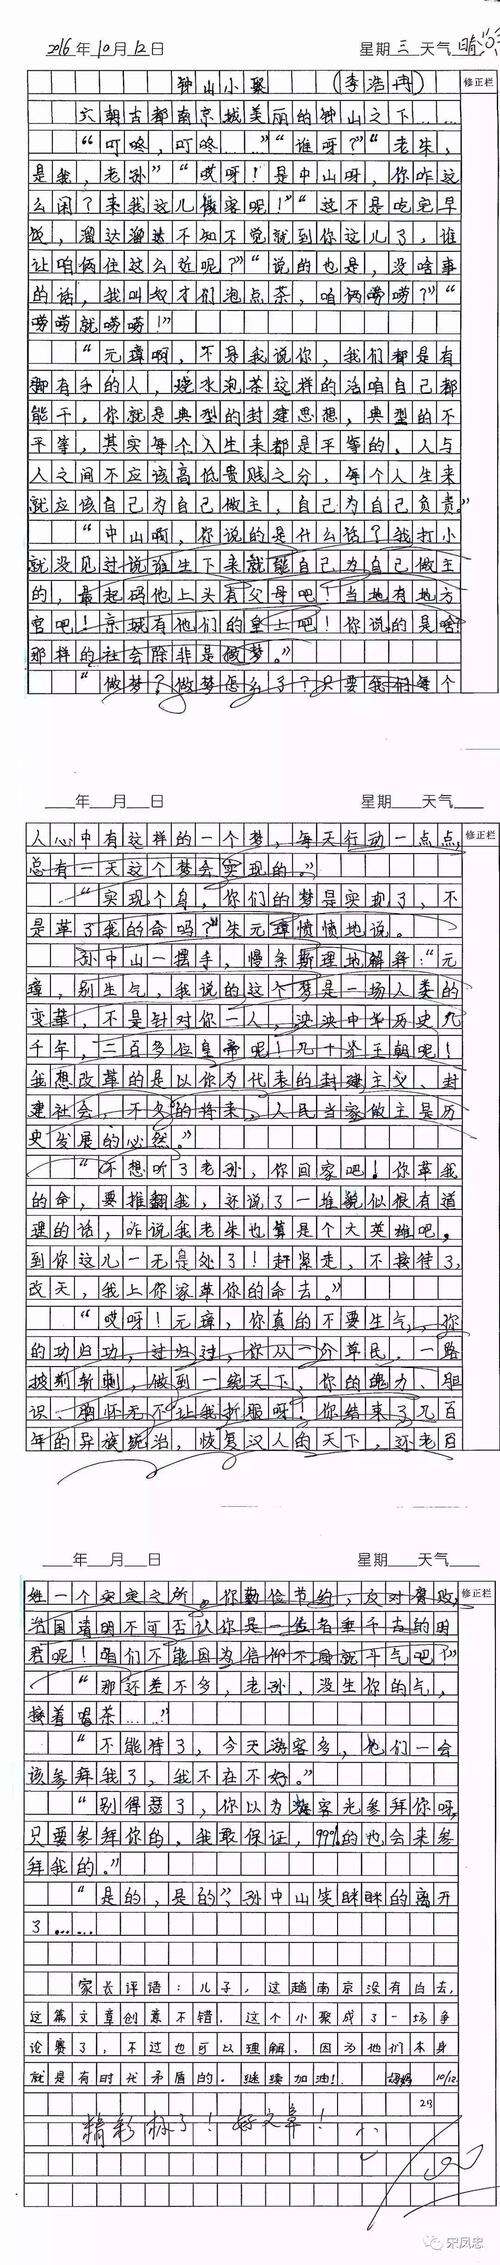 2016年10月12日 星期三 天气晴
钟山小聚 (李浩冉) 修正栏
六朝古都南京城美丽的钟山之下……
“叮咚，叮咚……”“谁呀？”“老朱，
是我，老孙”“哎呀！是中山呀，你咋这
么闲？来我这儿做客呢！”“这不是吃完早
饭，溜达溜达不知不觉就到你这儿了，谁
让咱俩住这么近呢？”“说的也是，没啥事
的话，我叫奴才们泡点茶，咱俩唠唠？”“
唠唠就唠唠！”
“元璋啊，不是我说你，我们都是有
脚有手的人，烧水泡茶这样的活咱自己都
能干，你就是典型的封建思想，典型的不
平等，其实每个人生来都是平等的，人与
人之间不应该高低贵贱之分，每个人生来
就应该自己为自己做主，自己为自己负责。”
“中山啊，你说的是什么话？我打小
就没见过说谁生下来就能自己为自己做主
的，最起码他上头有父母吧！当地有地方
官吧！京城有他们的皇上吧！你说的是啥？
那样的社会除非是做梦。”
“做梦？做梦怎么了？只要我们每个
年 月 日 星期 天气
人心中有这样的一个梦，每天行动一点点， 修正栏
总有一天这个梦会实现的。”
“实现个鸟，你们的梦是实现了，不
是革了我的命吗？”朱元璋愤愤地说。
孙中山一摆手，慢条斯理地解释：“元
璋，别生气，我说的这个梦是一场人类的
变革，不是针对你一人，泱泱中华历史几
千年，三百多位皇帝呢！几十个王朝呢！
我想改革的是以你为代表的封建主义、封
建社会，不久的将来，人民当家做主是历
史发展的必然。”
“不想听了老孙，你回家吧！你革我
的命，要推翻我，还说了一堆貌似很有道
理的话，咋说我老朱也算是个大英雄吧，
到你这儿一无是处了！赶紧走，不接待了，
改天，我上你家革你的命去。”
“哎呀！元璋，你真的不要生气，你
的功归功，过归过，你从一介草民，一路
披荆斩棘，做到一统天下，你的魄力、胆
识、胸怀无不让我折服呀！你结束了几百
年的异族统治，恢复汉人的天下，还老百
年 月 日 星期 天气
姓一个安定之所。你勤俭节约，反对腐败， 修正栏
治国清明不可否认你是一位名垂千古的明
君呢！咱们不能因为信仰不同就斗气吧！”
“那还差不多，老孙，没生你的气，
接着喝茶……”
“不能待了，今天游客多，他们一会
该参拜我了，我不在不好。”
“别得瑟了，你以为游客光参拜你呀，
只要参拜你的，我敢保证，99%的也会来参
拜我的。”
“是的，是的”，孙中山笑眯眯的离开
了……
家长评语：儿子，这趟南京没有白去，
这篇文章创意不错，这个小聚成了一场争
论赛了，不过也可以理解，因为他们本身
就是有时代矛盾的。继续加油！ 妈妈 10/12
精彩极了！好文章！
宋凤忠